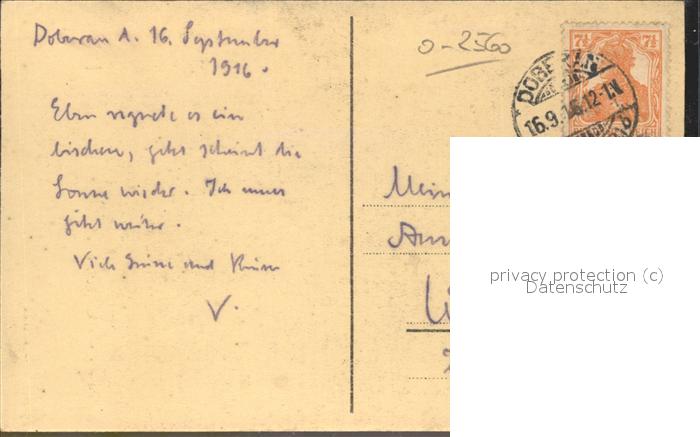 Doberan A. 16. September
1916.
Eben regnete es ein
bischen, jetzt scheint die
Sonne wieder. Ich muss
jetzt weiter.
Viele Grüsse und Küsse
V.
0-2560
7½ 7½
DOBERAN
16.9.16.12-1N
privacy protection (c)
Datenschutz